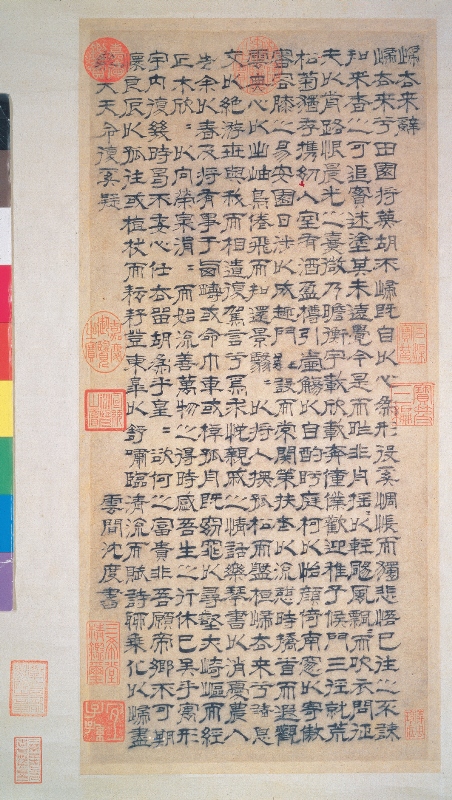 歸去來辭
歸去來兮田園將蕪胡不歸既自以心為形役奚惆悵而獨悲悟已往之不諫
知來者之可追實迷塗其未遠覺今是而昨非舟搖〻以輕颺風飄〻而吹衣問征
夫以前路恨晨光之熹微乃瞻衡宇載欣載奔僮僕歡迎稚子候門三徑就荒
松菊猶存攜幼入室有酒盈樽引壺觴以自酌眄庭柯以怡顏倚南窗以寄傲
審容膝之易安園日涉以成趣門雖設而常關策扶老以流憩時矯首而遐觀
雲無心以出岫鳥倦飛而知還景翳〻以將入撫孤松而盤桓歸去來兮請息
交以絕游世與我而相違復駕言兮焉求悅親戚之情話樂琴書以消憂農人
告余以春及將有事于西疇或命巾車或棹孤舟既窈窕以尋壑亦崎嶇而經
丘木欣〻以向榮泉涓〻而始流善萬物之得時感吾生之行休已矣乎寓形
宇內復幾時曷不委心任去留胡為乎遑〻欲何之富貴非吾願帝鄉不可期
懷良辰以孤往或植杖而耘耔登東皋以舒嘯臨清流而賦詩聊乘化以歸盡
樂夫天命復奚疑
雲間沈度書
嘉慶御覽之寶
三希堂精鑑璽
宜子孫
寶笈三編